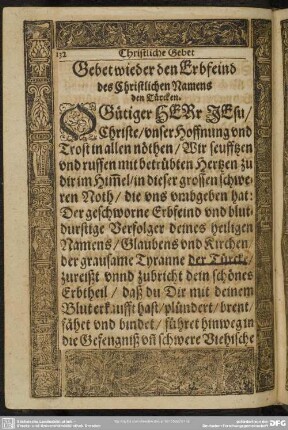 152
Christliche Gebet
Gebet wieder den Erbfeind
des Christlichen Namens
den Türcken.
O Gütiger HERr JEsu /
Christe / vnser Hoffnung vnd
Trost in allen nöthen / Wir seufftzen
vnd ruffen mit betrübten Hertzen zu
dir im Him̃el / in dieser grossen schwe-
ren Noth / die vns vmbgeben hat:
Der geschworne Erbfeind vnd blut-
dürstige Verfolger deines heiligen
Namens / Glaubens vnd Kirchen /
der grausame Tyranne der Türcke /
zureißt vnnd zubricht dein schönes
Erbtheil / daß du Dir mit deinem
Blut erkaufft hast / plündert / brent /
fähet vnd bindet / führet hinweg in
die Gefengniß vñ schwere Viehische